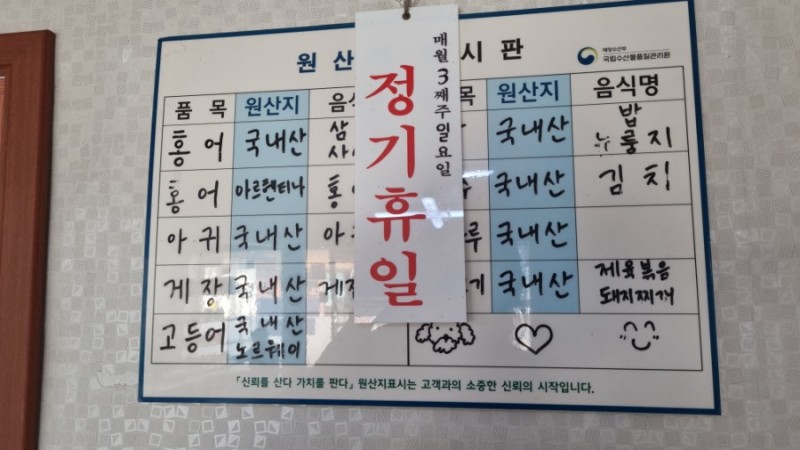 원산
시판
해양수산부
국립수산물품질관리원
매월 3째주 일요일
정기휴일
품목 원산지 원산지 음식명
홍어 국내산 국내산 밥
누룽지
홍어 아르헨티나 국내산 김치
아귀 국내산 국내산
게장 국내산 국내산 제육볶음
돼지찌개
고등어 국내산
노르웨이
「신뢰를 산다 가치를 판다」 원산지표시는 고객과의 소중한 신뢰의 시작입니다.